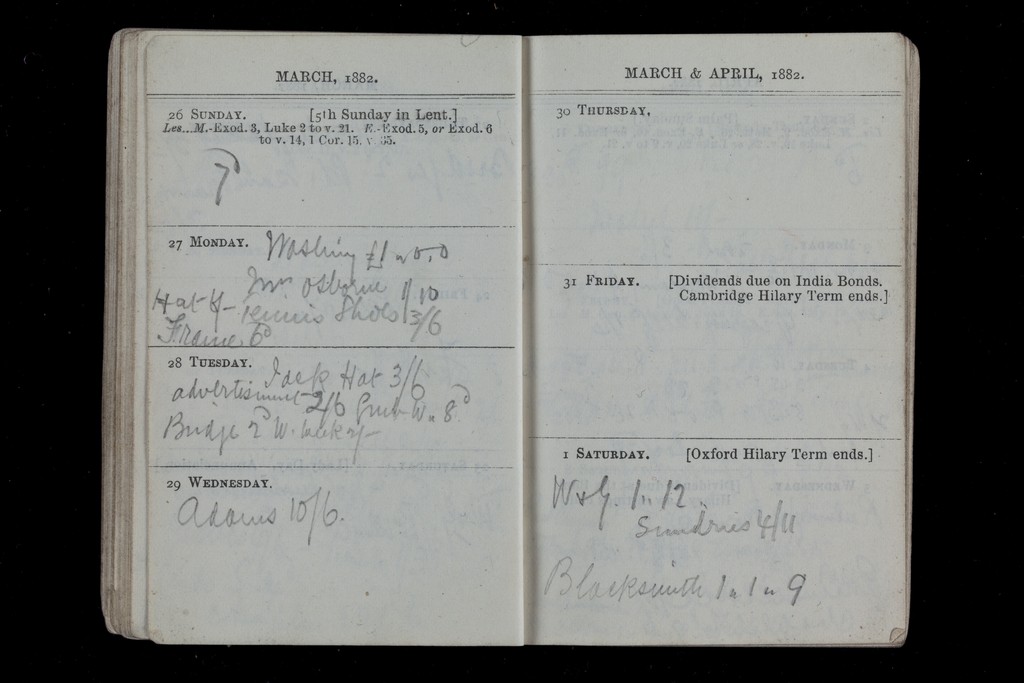 MARCH, 1882.
26 SUNDAY. [5th Sunday in Lent.]
Les...M.-Exod. 3, Luke 2 to v. 21. E.-Exod. 5, or Exod. 6
to v. 14, 1 Cor. 15, v. 35.
7d
27 MONDAY. Washing £1 " 0 . 0
Mrs Osborne 1/10
Hat 4/- Tennis Shoes 13/6
Frame 6d
28 TUESDAY. Jack Hat 3/6
advertisement 2/6 W. 8d
Bridge 2d W.
29 WEDNESDAY.
Adams 10/6.
MARCH & APRIL, 1882.
30 THURSDAY.
31 FRIDAY. [Dividends due on India Bonds.
Cambridge Hilary Term ends.]
1 SATURDAY. [Oxford Hilary Term ends.]
W & G. 1 " 12 "
Sundries 4/11
Blacksmith 1 " 1 " 9